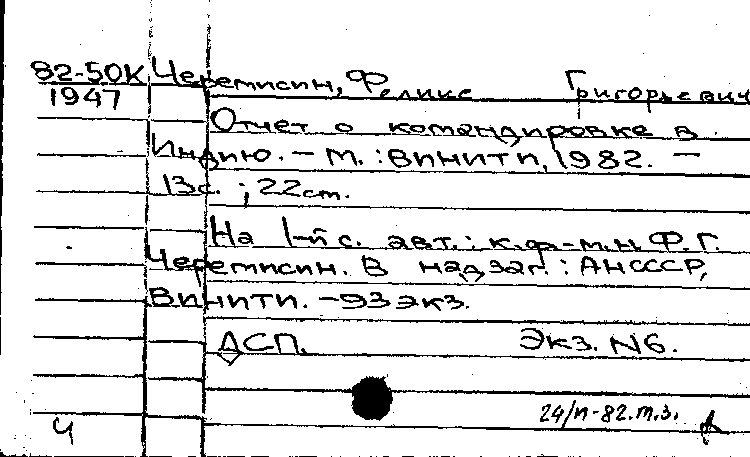 82-50К Черемисин, Феликс Григорьевич
1947
Отчет о командировке в
Индию. – М. : ВИНИТИ, 1982. –
13с. ; 22см.
На 1-й с. авт.: к.ф-м.н. Ф.Г.
Черемисин. В надзаг. : АН СССР,
ВИНИТИ. – 93 экз.
ДСП. Экз. N6.
24/п-82.т.з.
Ч